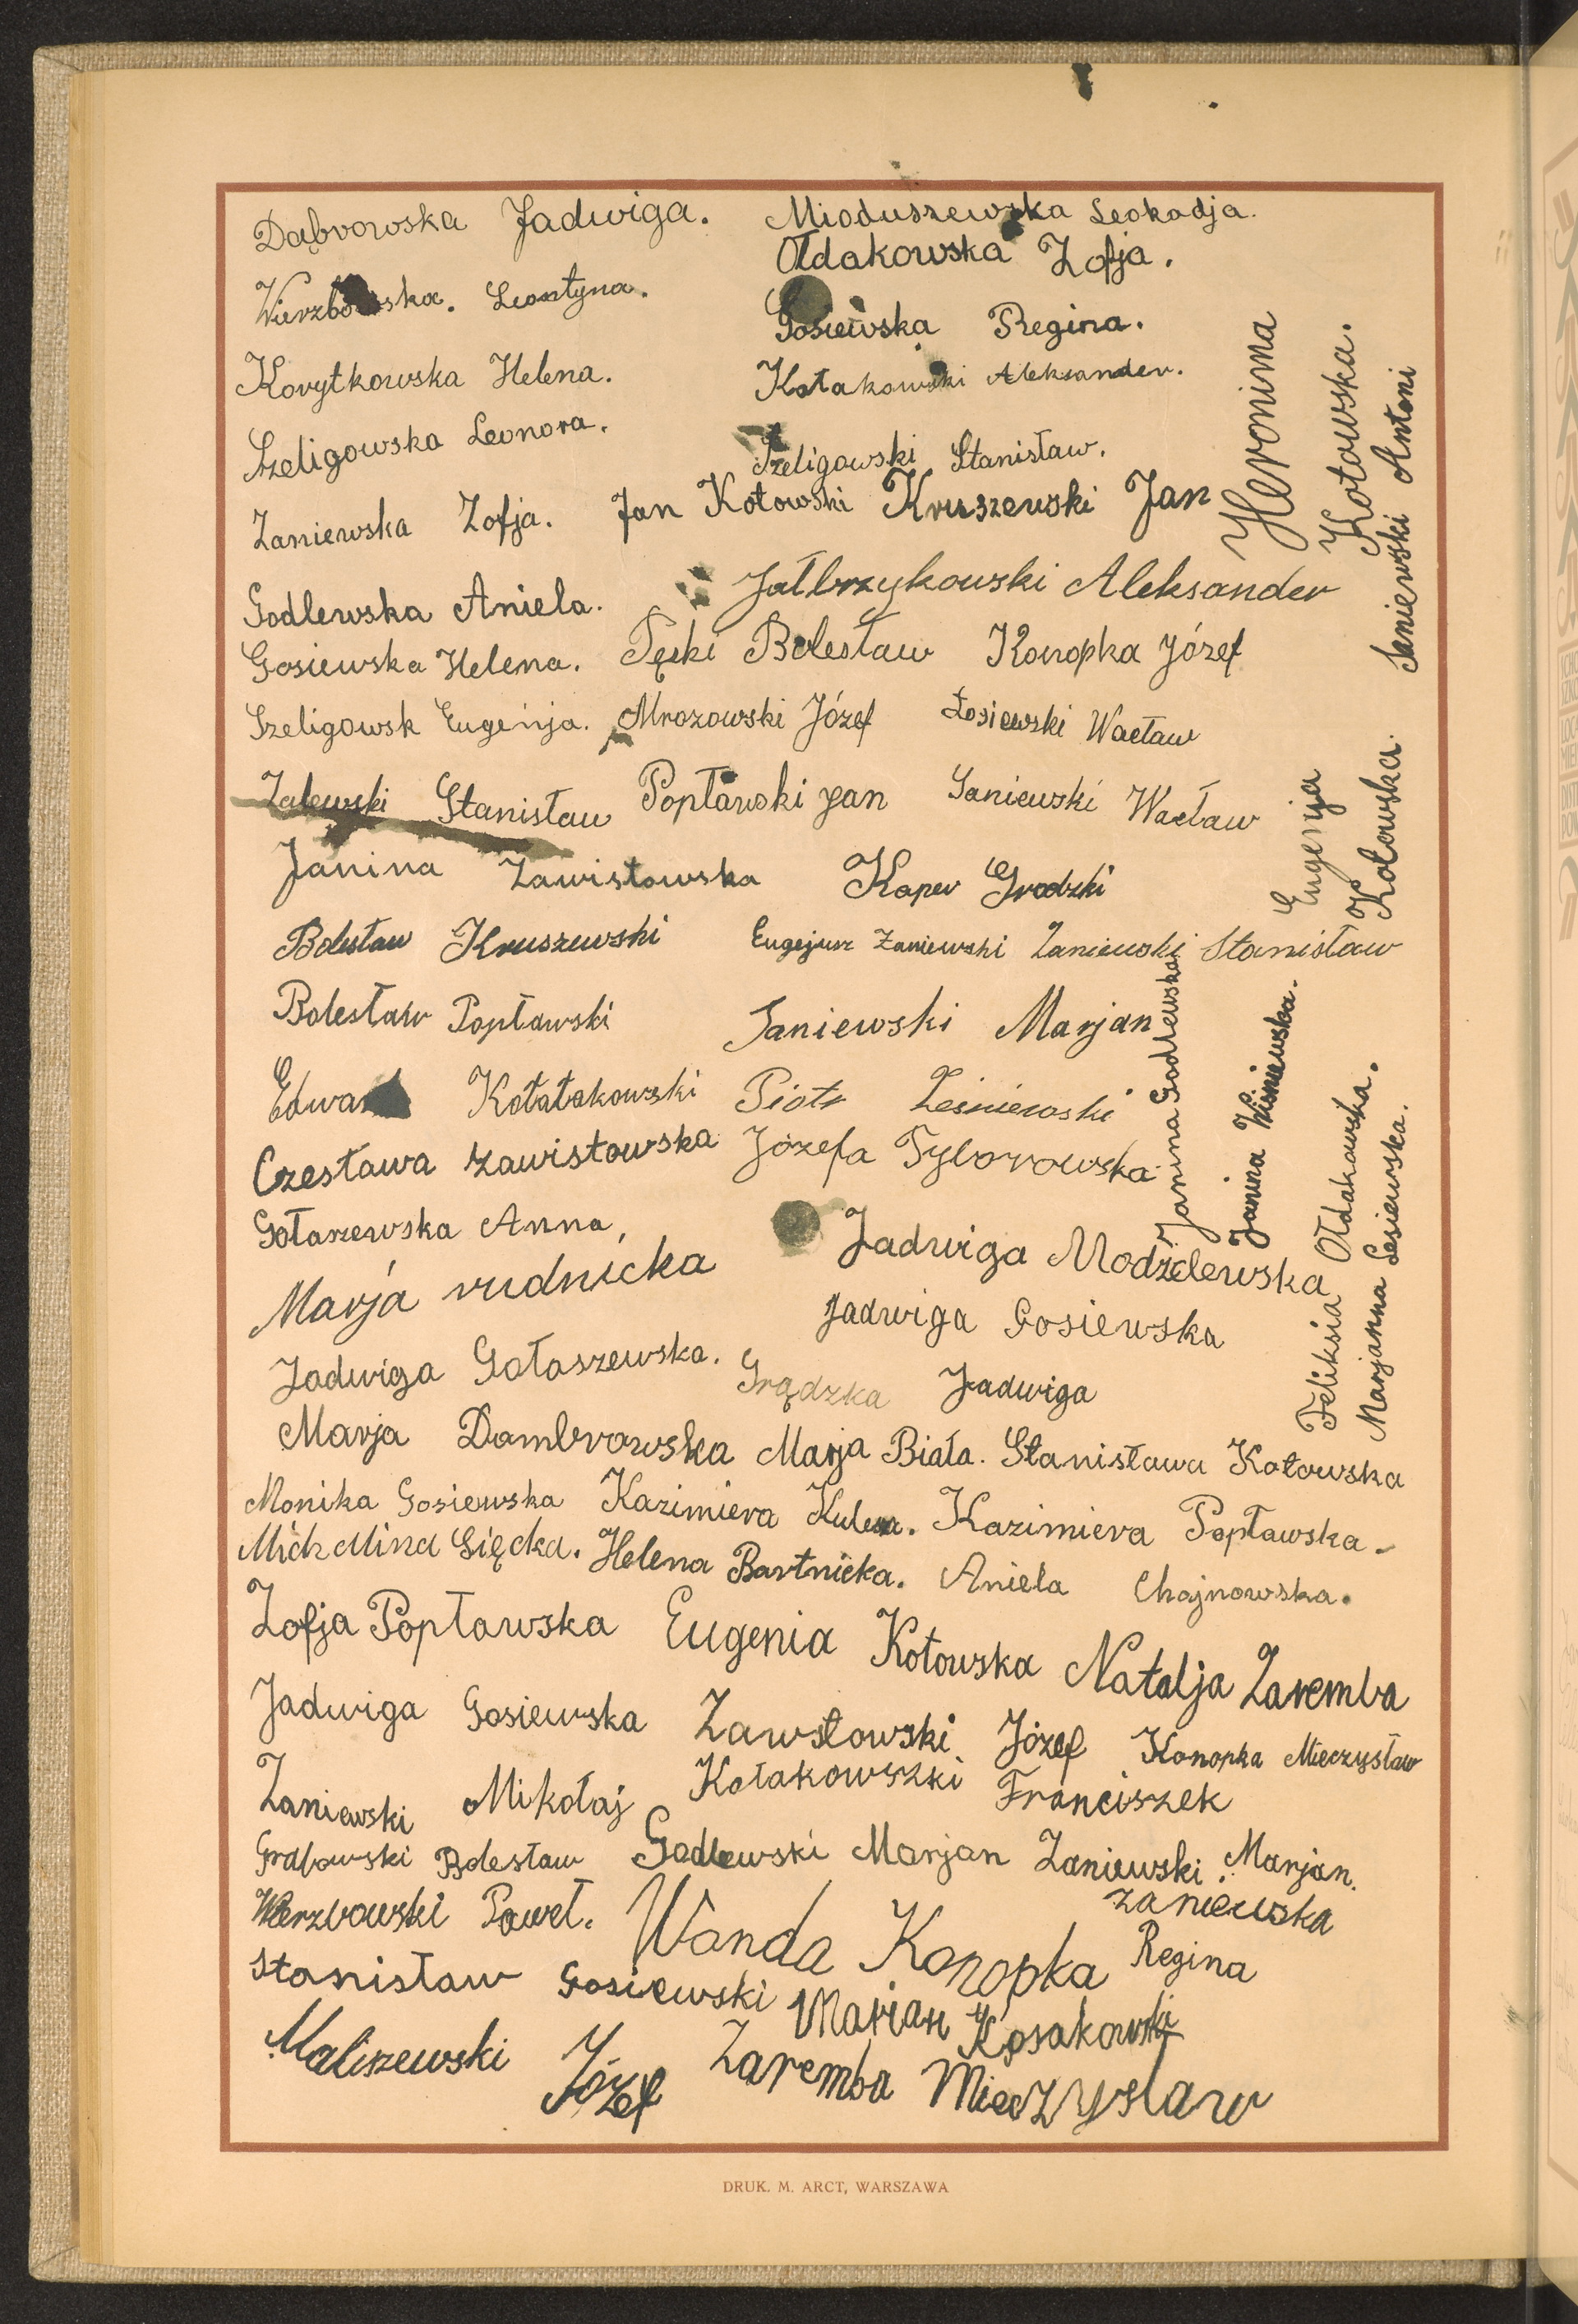 Dąbrowska Jadwiga. Mioduszewska Leokadja.
Ołdakowska Zofja.
Leontyna.
Gosiewska Regina.
Korytkowska Helena. Kołakowski Aleksander.
Szeligowska Leonora.
Szeligowski Stanisław.
Zaniewska Zofja. Jan Kotowski Kruszewski Jan
Jałbrzykowski Aleksander
Godlewska Aniela.
Gosiewska Helena. Pęski Bolesław Konopka Józef
Szeligowsk Eugenja. Mrozowski Józef Łosiewski Wacław
Zalewski Stanisław Popławski Jan Saniewski Wacław
Janina Zawistowska Kaper Grodzki
Bolesław Kruszewski Eugejusz Zaniewski Zaniewski Stanisław
Bolesław Popławski Saniewski Marjan
Kołatakowski Piotr Leśniewski
Czesława Zawistowska Józefa Tyborowska
Gołaszewska Anna,
Marja rudnicka Jadwiga Modzelewska
Jadwiga Gosiewska
Jadwiga Gołaszewska. Grądzka Jadwiga
Marja Dombrowska Marja Biała. Stanisława Kotowska
Monika Gosiewska Kazimiera Kulesza. Kazimiera Popławska.
Michalina Sięcka. Helena Bartnicka. Aniela Chojnowska.
Zofja Popławska Eugenia Kotowska Natalja Zaremba
Jadwiga Gosiewska Zawstowski Józef Konopka Mieczysław
Zaniewski Mikołaj Kołakowszki Franciszek
Grabowski Bolesław Godlewski Marjan Zaniewski Marjan.
Wierzbowski Paweł. Wanda Konopka Zaniewska
Regina
Stanisław Gosiewski Marian Kosakowski
Maliszewski Józef Zaremba Mieczysław
Heronima
Kotowska.
Saniewski Antoni
Eugenja
Kotowska.
Janina Godlewska
Janina Wiśniewska.
Feliksia Ołdakowska.
Marjanna Lesiewska.
DRUK. M. ARCT, WARSZAWA